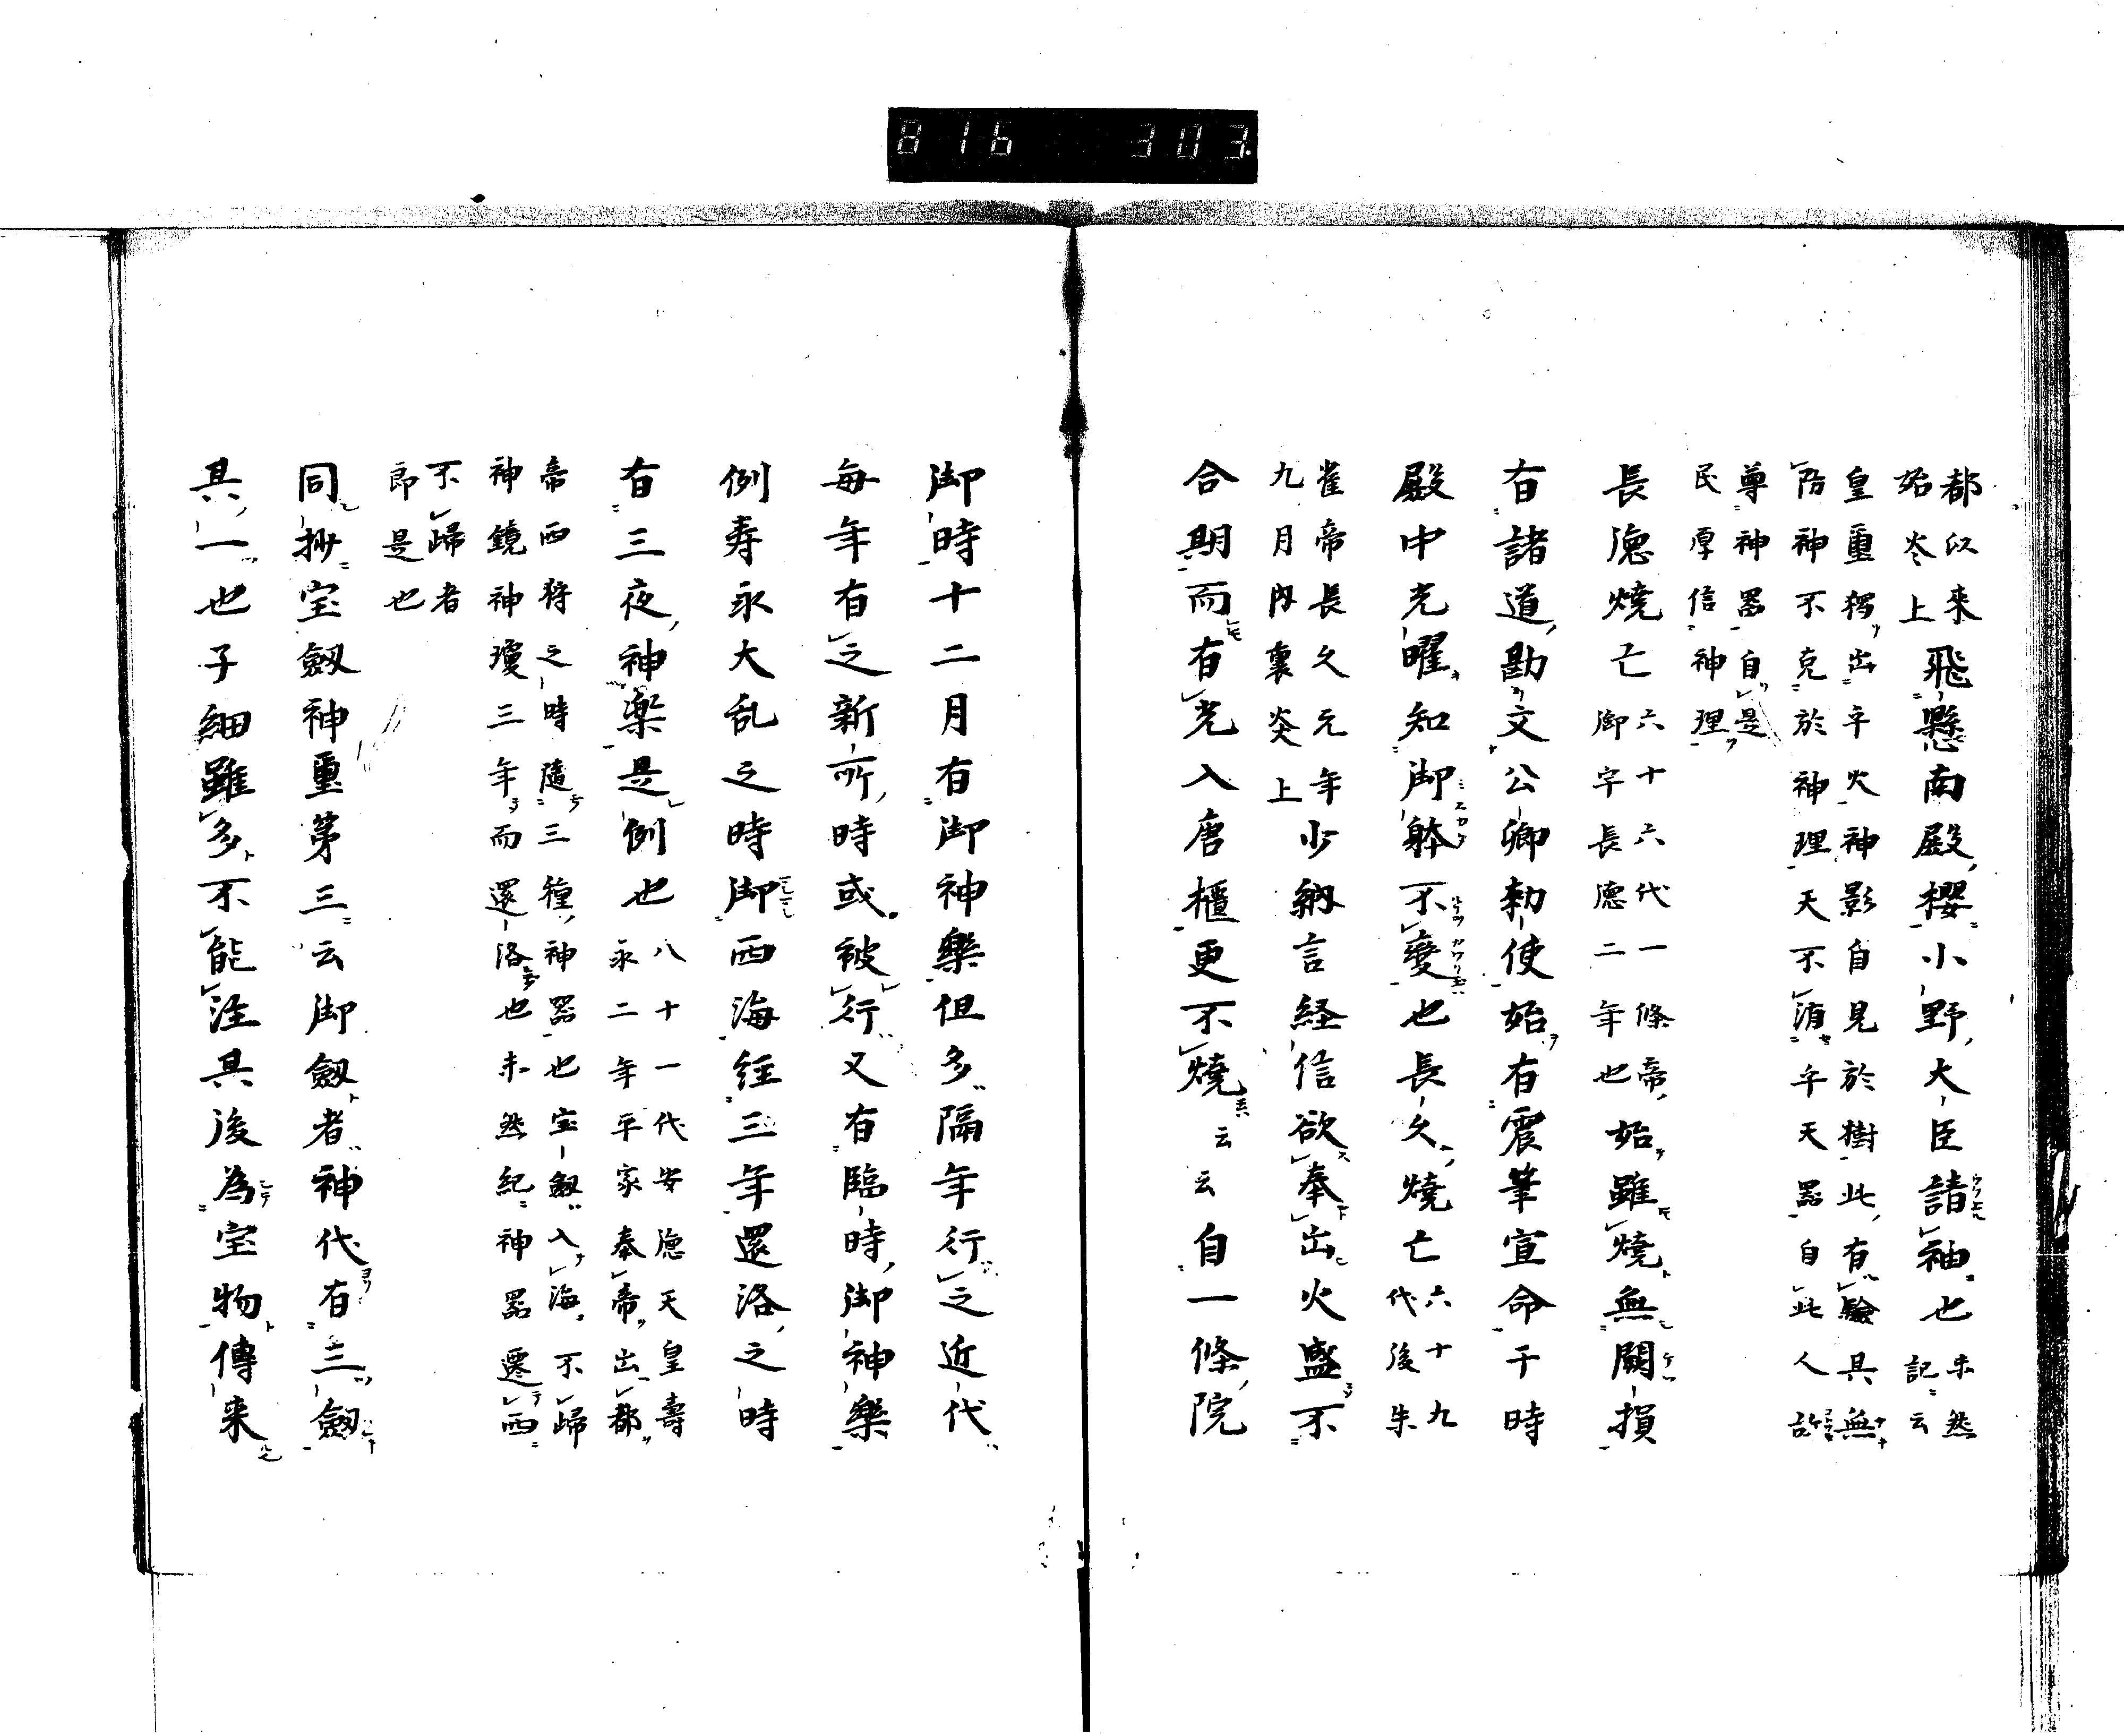 816 303.
都以来
始炎上
飛懸南殿櫻小野大臣請袖也
未然
記云
皇璽獨出乎火神影自見於樹此有驗具無
防神不克於神理天不須乎天器自此人許
尊神器自是
民厚信神理
長德燒亡
六十六代一條帝
御宇長德二年也
始雖燒無闕損
有諸道勘文公卿勅使始有震筆宣命于時
殿中光曜知御躰不變也長久燒亡
六十九
代後朱
雀帝長久元年
九月内裏炎上
少納言経信欲奉出火盛不
合期而有光入唐櫃更不燒云云自一條院
御時十二月有御神樂但多隔年行之近代
每年有之新所時或被行又有臨時御神樂
例寿永大乱之時御西海経三年還洛之時
有三夜神楽是例也
八十一代安德天皇壽
永二年平家奉帝出都
帝西狩之時隨三種神器也宝劔入海不歸
神鏡神瓊三年而還洛也未然紀神器遷西
不歸者
即是也
同抄宝劔神璽第三云御劔者神代有三劔
具一也子細雖多不能注具後為宝物傳来